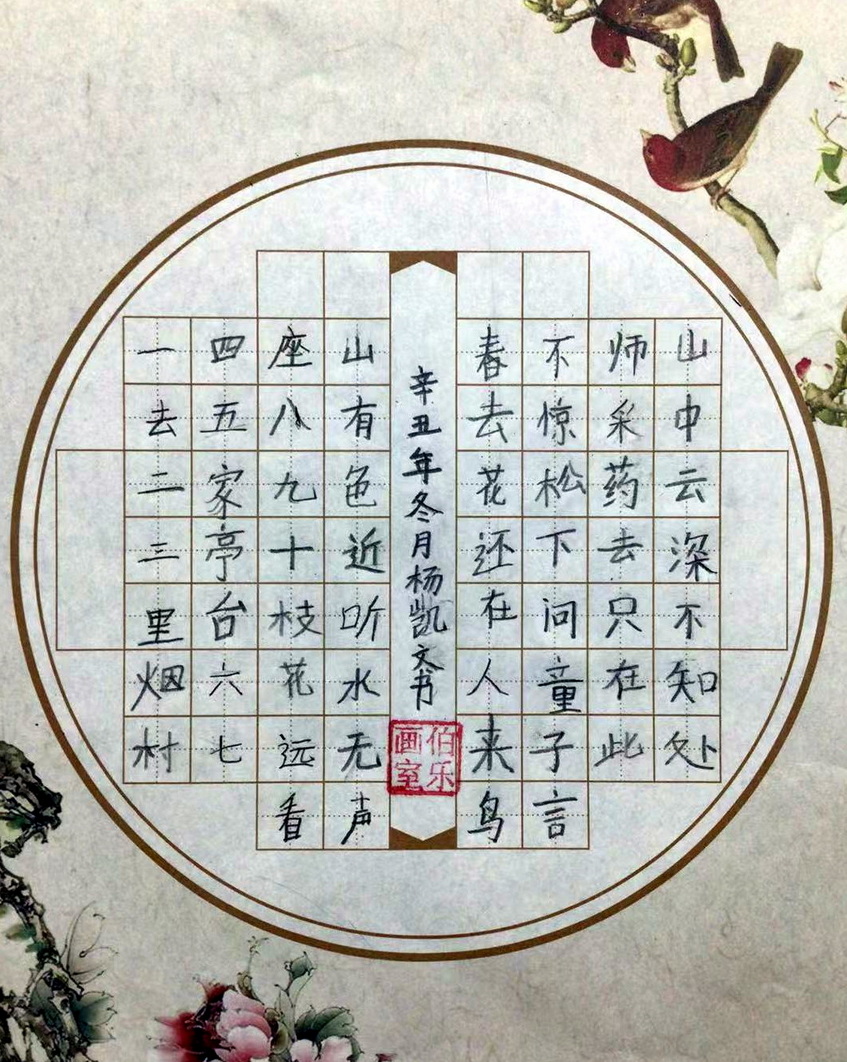 一去二三里烟村
四五家亭台六七
座八九十枝花远看
山有色近听水无声
辛丑年冬月杨凯文书
伯乐
画室
春去花还在人来鸟
不惊松下问童子言
师采药去只在此
山中云深不知处